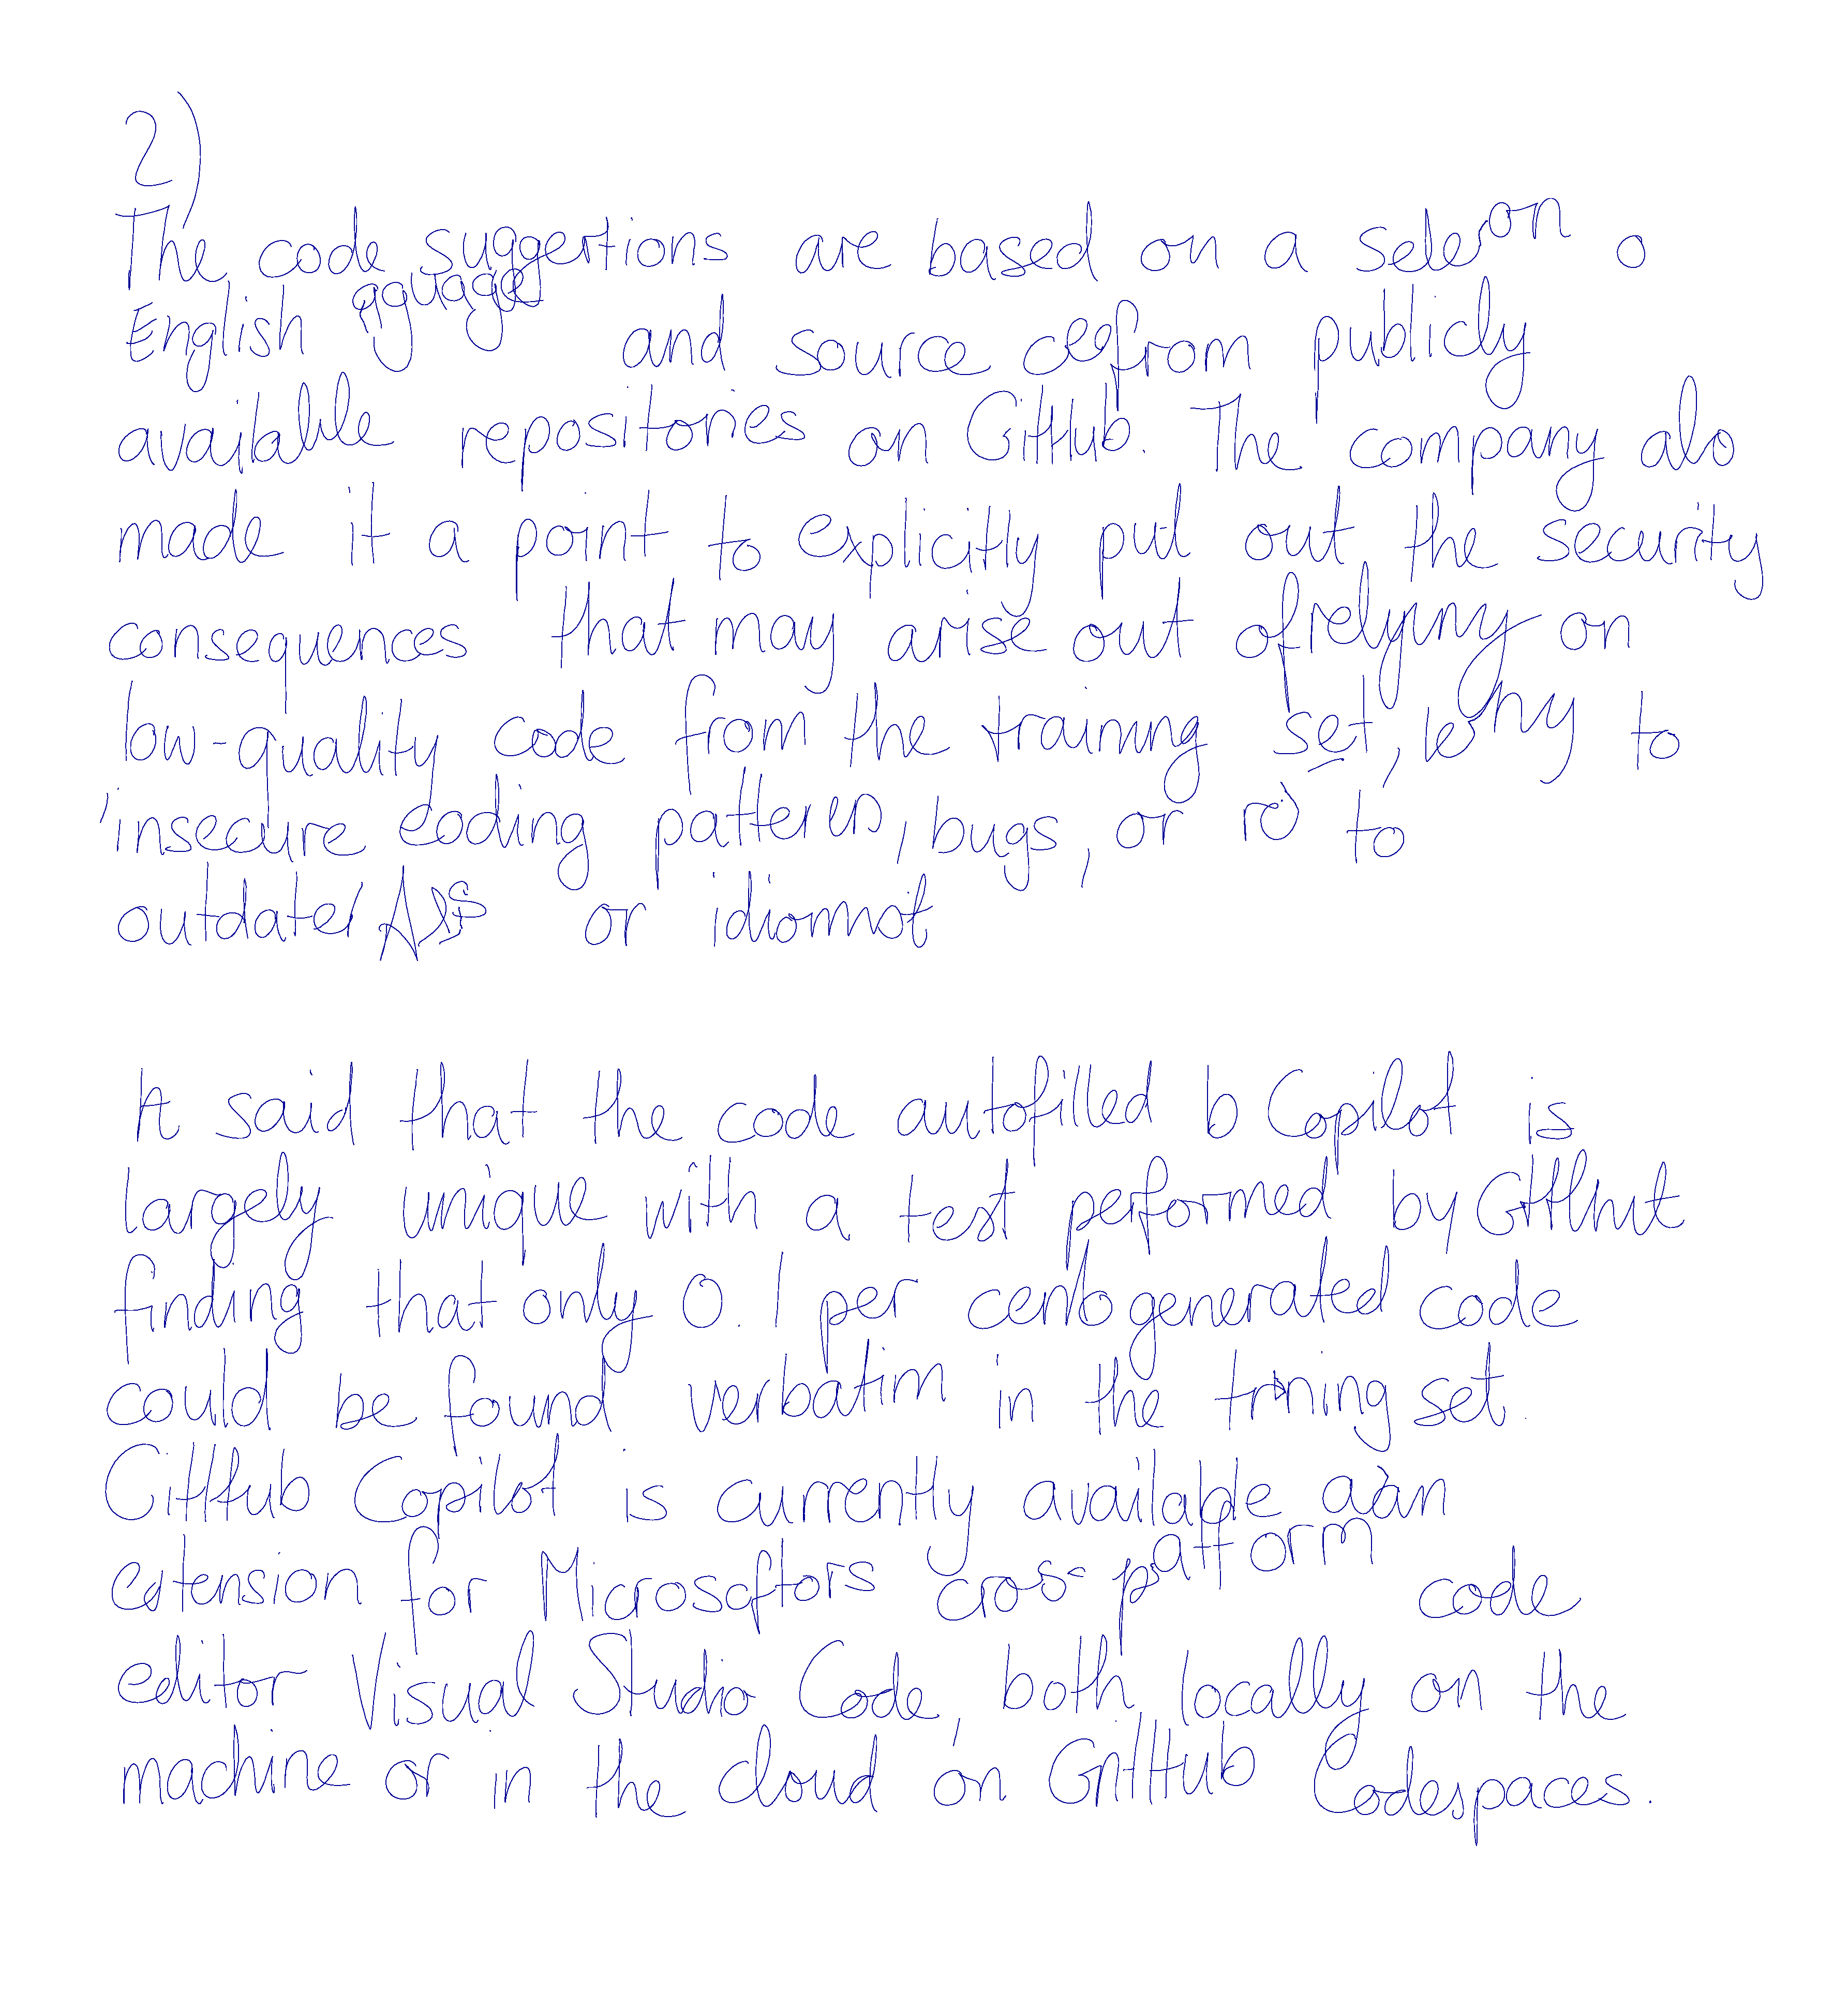 2)
The code suggestions are based on a seleson o
English and source from publicly
available repositories on GitHub. The company also
made it a point to explicitly put out the security
consequences that may arise out of relying on
low-quality code from the training set, to
insecure coding patterns, bugs, or to
outdated or
It said that the code autofilled b Copilot is
largely unique with a test performed by
finding that only 0.1 per generated code
could be found verbatim in the set.
GitHub Copilot is currently available
extension for cross platform code
editor Visual Studio Code, both locally on the
machine or in the cloud on GitHub Codespaces.